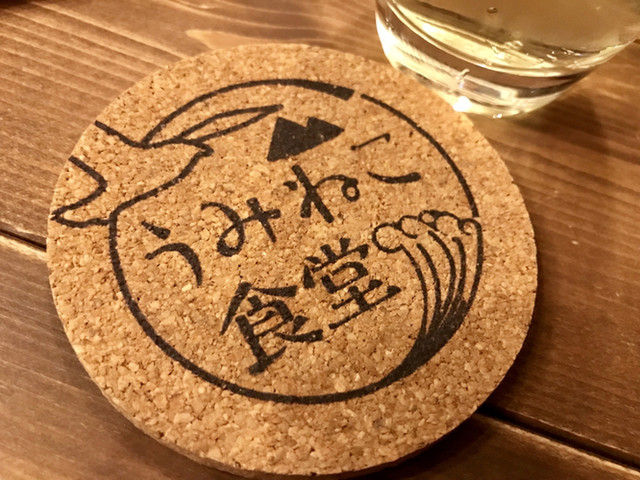 うみねこ
食堂